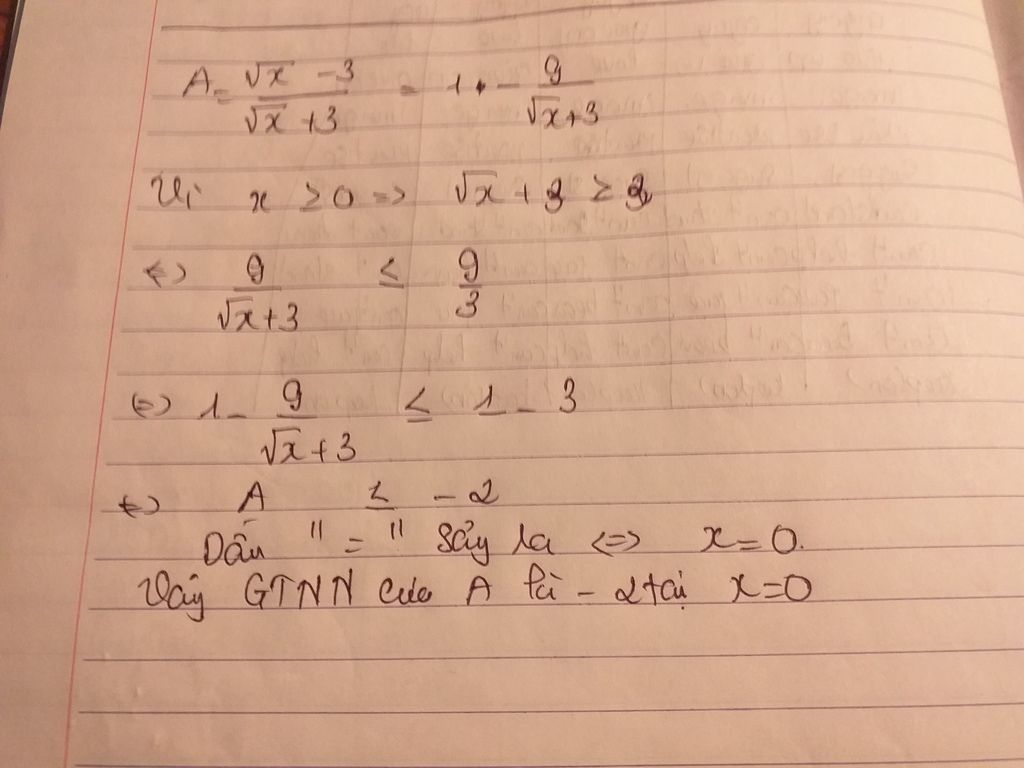 A = √x - 3 / √x + 3 = 1 - 9 / √x + 3
Vì x ≥ 0 => √x + 3 ≥ 3
<=> 9 / √x + 3 ≤ 9 / 3
<=> 1 - 9 / √x + 3 ≤ 1 - 3
<=> A ≤ -2
Dấu "=" sảy ra <=> x = 0.
Vậy GTNN của A là -2 tại x = 0